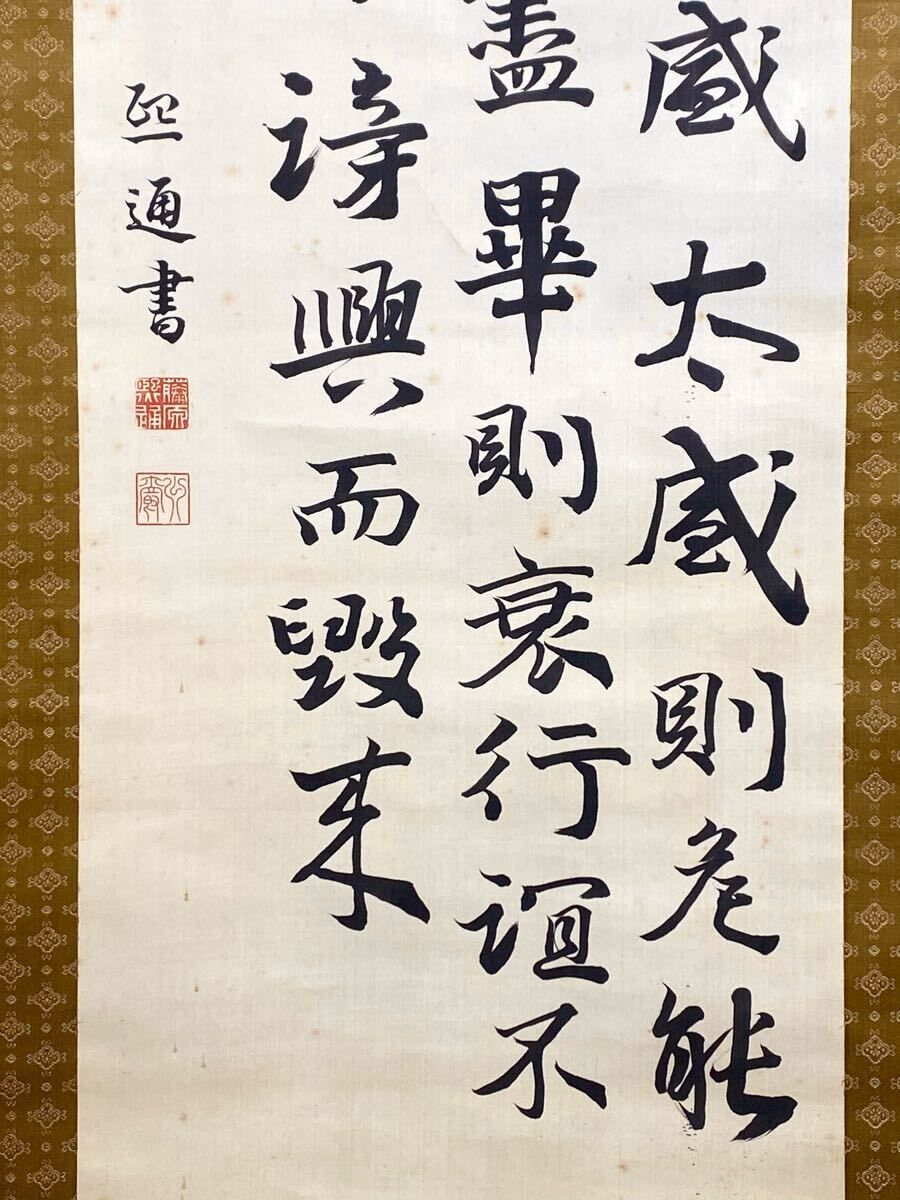 盛太盛則危能
盡畢則衰行誼不
謗興而毀来
熙通書
藤原熙通